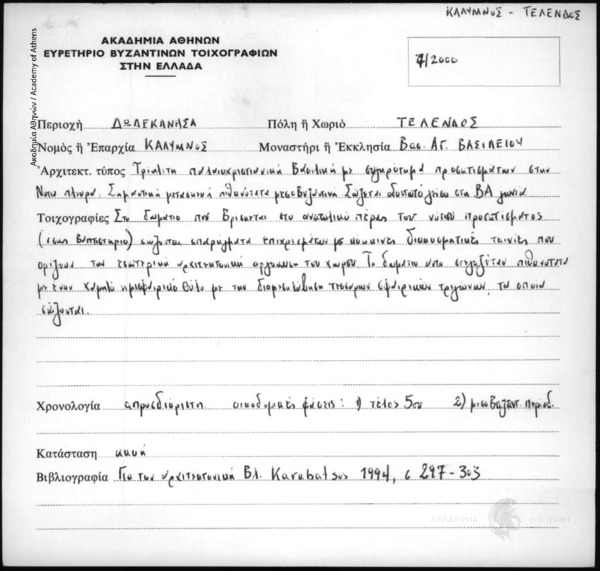 ΚΑΛΥΜΝΟΣ - ΤΕΛΕΝΔΟΣ
ΑΚΑΔΗΜΙΑ ΑΘΗΝΩΝ
ΕΥΡΕΤΗΡΙΟ ΒΥΖΑΝΤΙΝΩΝ ΤΟΙΧΟΓΡΑΦΙΩΝ
ΣΤΗΝ ΕΛΛΑΔΑ
4/2000
Ακαδημία Αθηνών / Academy of Athens
Περιοχή ΔΩΔΕΚΑΝΗΣΑ Πόλη ἤ Χωριό ΤΕΛΕΝΔΟΣ
Νομός ἤ Ἐπαρχία ΚΑΛΥΜΝΟΣ Μοναστήρι ἤ Ἐκκλησία Βασ. ΑΓ. ΒΑΣΙΛΕΙΟΥ
Ἀρχιτεκτ. τύπος Τρίκλιτη παλαιοχριστιανική Βασιλική με συγκρότημα προσκτισμάτων στην
Νότια πλευρά. Σημαντική μετασκευή πιθανότατα μεσοβυζαντινή Σώζεται οστεοφυλάκιο στη ΒΑ γωνία
Τοιχογραφίες Στο δωμάτιο που βρίσκεται στο ανατολικό πέρας του νότιου προσκτίσματος
(ίσως βαπτιστήριο) σώζονται σπαράγματα επιχρισμάτων με κόκκινες διακοσμητικές ταινίες που
ορίζουν την εσωτερική αρχιτεκτονική οργάνωση του χώρου. Το δωμάτιο αυτό στεγαζόταν πιθανότατα
με έναν χαμηλό ημισφαιρικό θόλο με την διαμεσολάβηση τεσσάρων σφαιρικών τριγώνων, τα οποία
σώζονται.
Χρονολογία απροσδιόριστη οικοδομικές φάσεις: 1) τέλος 5ου 2) μεσοβυζαντ. περίοδ.
Κατάσταση κακή
Βιβλιογραφία Για την αρχιτεκτονική Βλ. Karabatsos 1994, σ 297-303